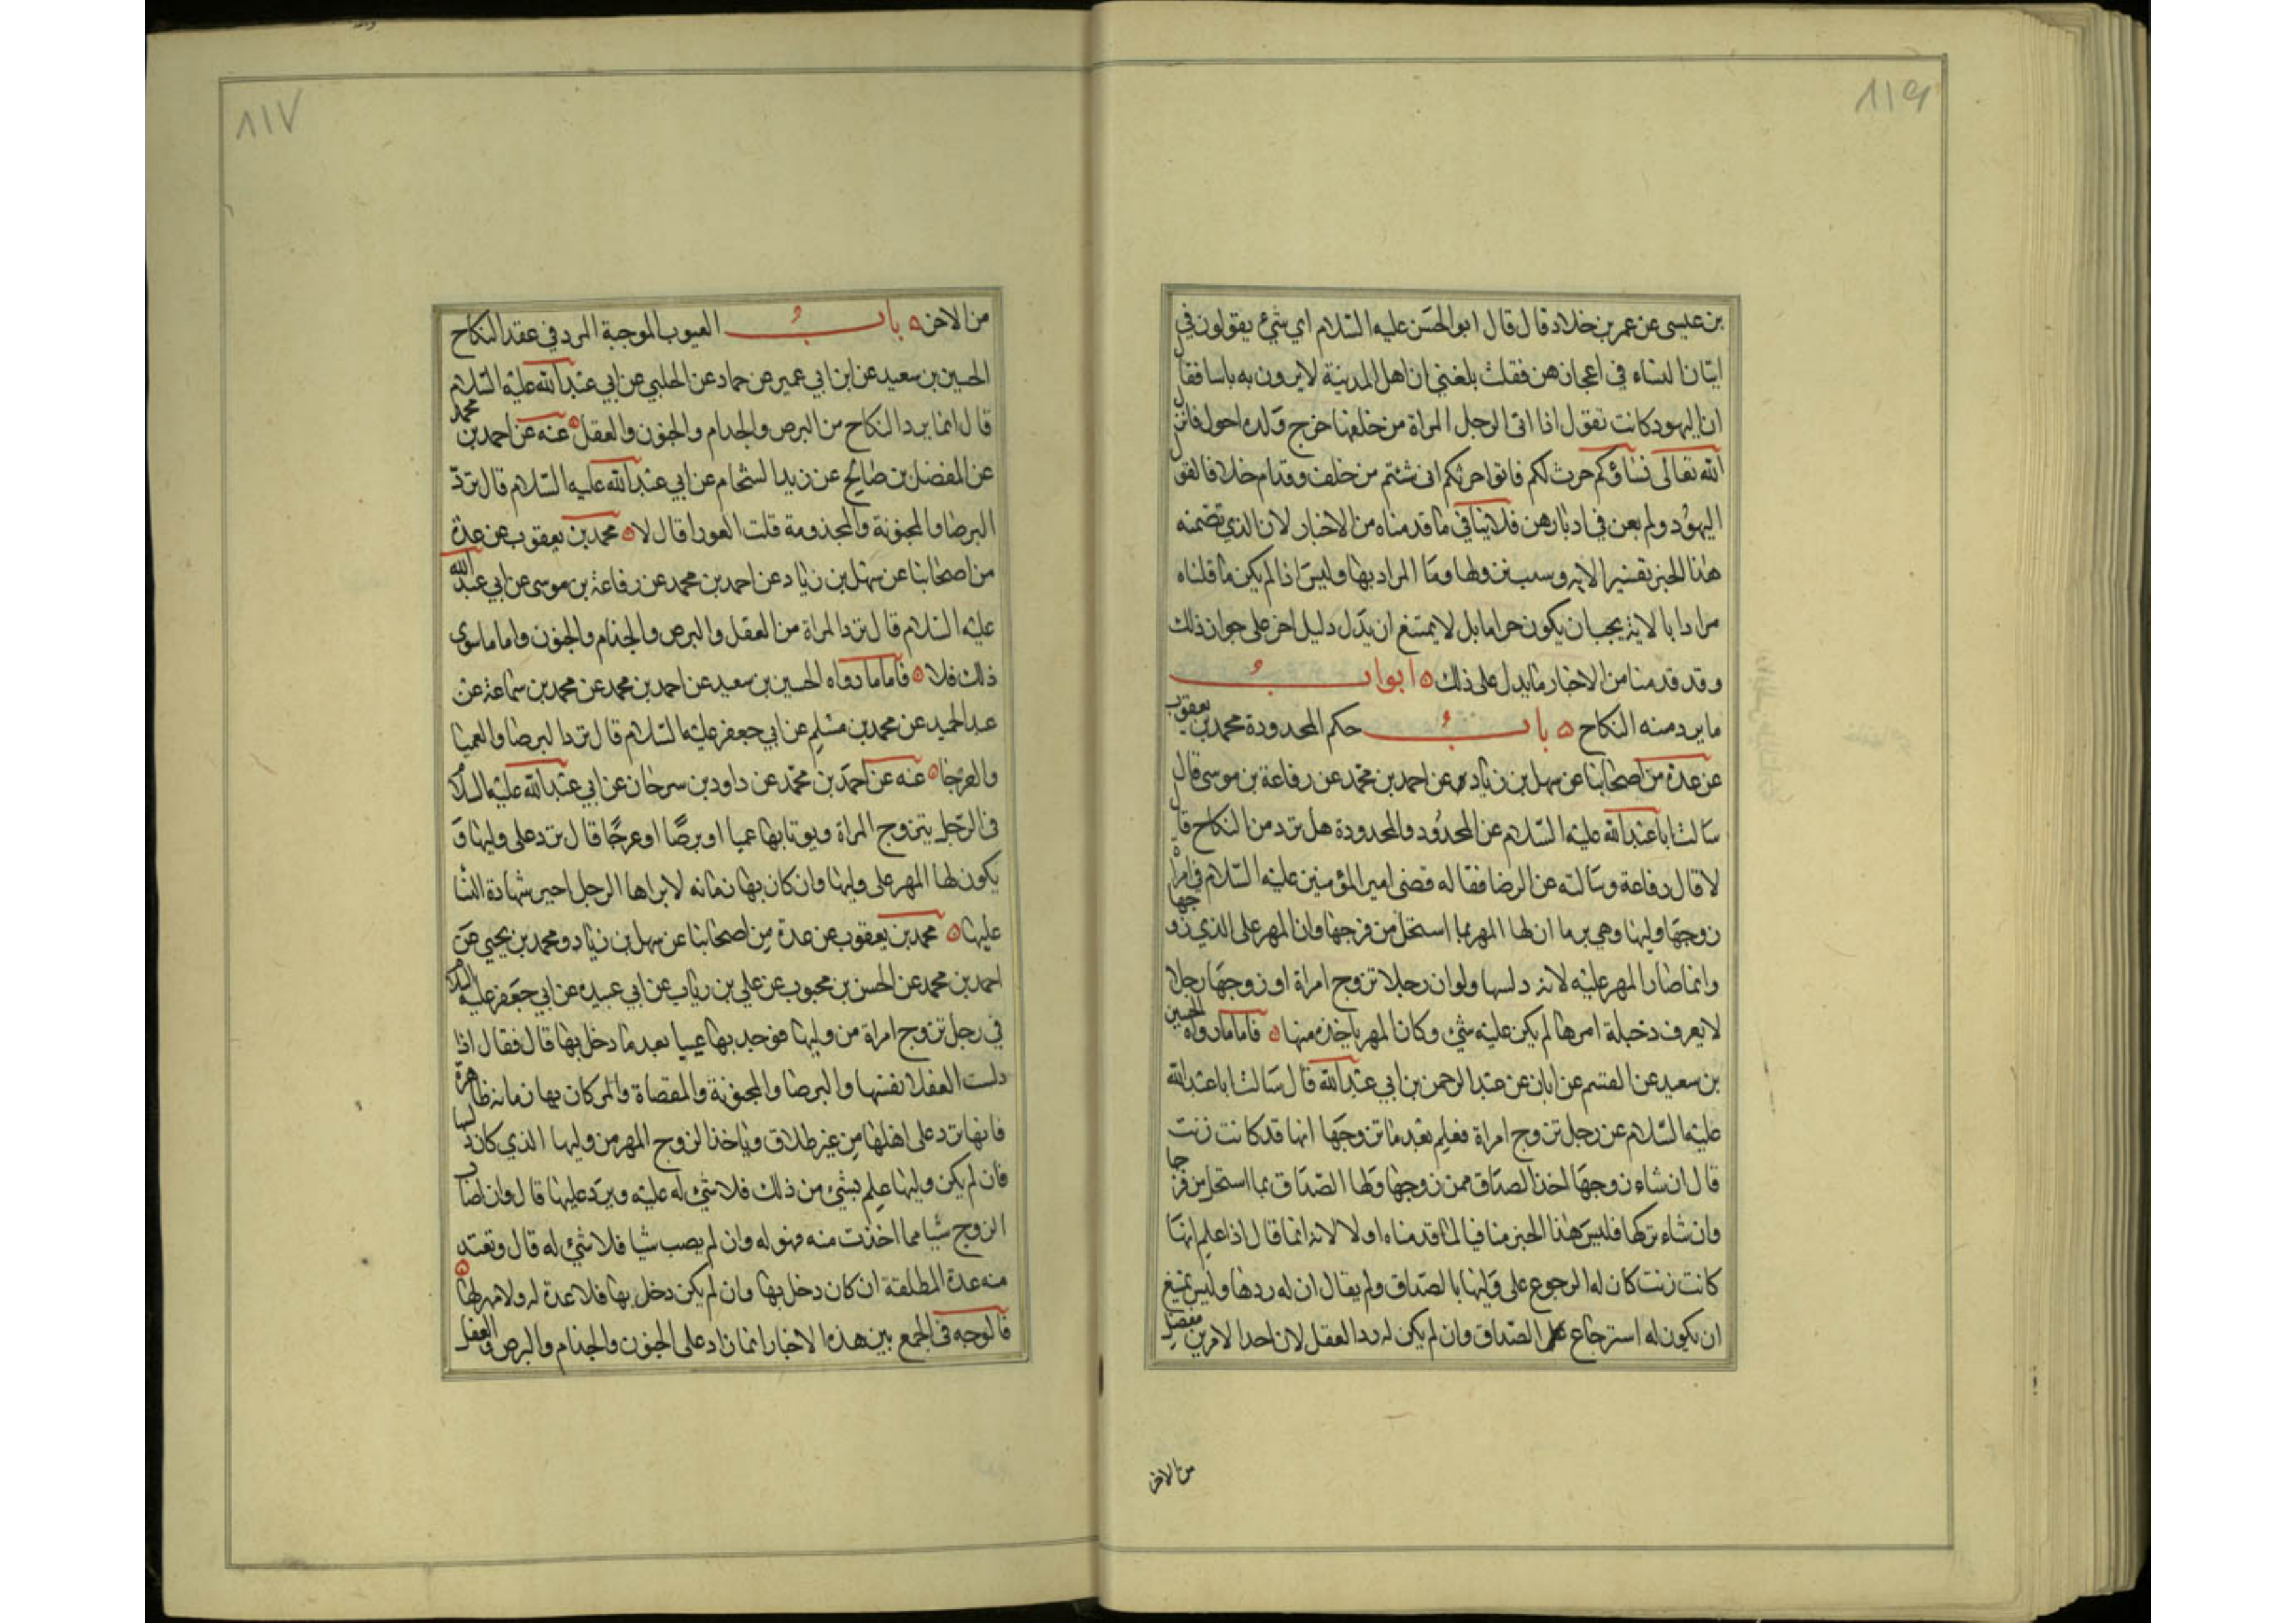 ٨١٩
بن عيسى عن عمر بن خلاد قال قال ابو الحسن عليه السلام اي شئ يقولون في
اتيان النساء في اعجازهن فقلت بلغني ان اهل المدينة لا يرون به باسا فقال
ان اليهود كانت تقول اذا اتى الرجل المراة من خلفها خرج ولده احول فانزل
الله تعالى نساؤكم حرث لكم فاتوا حرثكم انى شئتم من خلف وقدام خلافا لقول
اليهود ولم يعن في ادبارهن فلا ينافي ما قدمناه من الاخبار لان الذي تضمنه
هذا الخبر تفسير الاية وسبب نزولها وما المراد بها وليس اذا لم يكن ما قلناه
مرادا بالاية يجب ان يكون حراما بل لا يمتنع ان يدل دليل اخر على جواز ذلك
وقد قدمنا من الاخبار ما يدل على ذلك ٥ ابواب
ما يرد منه النكاح ٥ باب حكم المحدودة محمد بن يعقوب
عن عدة من اصحابنا عن سهل بن زياد عن احمد بن محمد عن رفاعة بن موسى قال
سالت ابا عبد الله عليه السلام عن المحدود والمحدودة هل ترد من النكاح قال
لا قال رفاعة وسالته عن البرصا فقال قضى امير المؤمنين عليه السلام في امراة
زوجها وليها وهي برصا ان لها المهر بما استحل من فرجها وان المهر على الذي زوجها
وانما صار المهر عليه لانه دلسها ولو ان رجلا تزوج امراة او زوجها رجلا
لا يعرف دخيلة امرها لم يكن عليه شئ وكان المهر ياخذه منها ٥ فاما ما رواه الحسين
بن سعيد عن القسم عن ابان عن عبد الرحمن بن ابي عبد الله قال سالت ابا عبد الله
عليه السلام عن رجل تزوج امراة فعلم بعد ما تزوجها انها قد كانت زنت
قال ان شاء زوجها اخذ الصداق ممن زوجها ولها الصداق بما استحل من فرجها
وان شاء تركها فليس هذا الخبر منافيا لما قدمناه اولا لانه انما قال اذا علم انها
كانت زنت كان له الرجوع على وليها بالصداق ولم يقال ان له ردها وليس يمتنع
ان يكون له استرجاع الصداق وان لم يكن له رد العقد لان احد الامرين منفصل
من الاخر
٨١٧
من الاخر ٥ باب العيوب الموجبة الرد في عقد النكاح
الحسين بن سعيد عن ابن ابي عمير عن حماد عن الحلبي عن ابي عبد الله عليه السلام
قال انما يرد النكاح من البرص والجذام والجنون والعفل ٥ عنه عن احمد بن محمد
عن المفضل بن صالح عن زيد الشحام عن ابي عبد الله عليه السلام قال ترد
البرصا والمجنونة والمجذومة قلت العورا قال لا ٥ محمد بن يعقوب عن عدة
من اصحابنا عن سهل بن زياد عن احمد بن محمد عن رفاعة بن موسى عن ابي عبد الله
عليه السلام قال ترد المراة من العفل والبرص والجذام والجنون واما ما سوى
ذلك فلا ٥ فاما ما رواه الحسين بن سعيد عن احمد بن محمد عن محمد بن سماعة عن
عبد الحميد عن محمد بن مسلم عن ابي جعفر عليه السلام قال ترد البرصا والعميا
والعرجا ٥ عنه عن احمد بن محمد عن داود بن سرحان عن ابي عبد الله عليه السلام
في الرجل يتزوج المراة ويوتا بها عميا او برصا او عرجا قال ترد على وليها و
يكون لها المهر على وليها وان كان بها زمانة لا يراها الرجل اجيز شهادة النسا
عليها ٥ محمد بن يعقوب عن عدة من اصحابنا عن سهل بن زياد ومحمد بن يحيى عن
احمد بن محمد عن الحسن بن محبوب عن علي بن رياب عن ابي عبيدة عن ابي جعفر عليه السلام
في رجل تزوج امراة من وليها فوجد بها عيبا بعد ما دخل بها قال فقال اذا
دلست العفلا نفسها والبرصا والمجنونة والمفضاة ومن كان بها زمانة ظاهرة
فانها ترد على اهلها من غير طلاق وياخذ الزوج المهر من وليها الذي كان دلسها
فان لم يكن وليها علم بشئ من ذلك فلا شئ له عليه ويرد عليها قال وان اصاب
الزوج شيا مما اخذت منه فهو له وان لم يصب شيا فلا شئ له قال وتعتد
منه عدة المطلقة ان كان دخل بها وان لم يكن دخل بها فلا عدة له ولا مهر لها ٥
فالوجه في الجمع بين هذه الاخبار انما زاد على الجنون والجذام والبرص والعفل